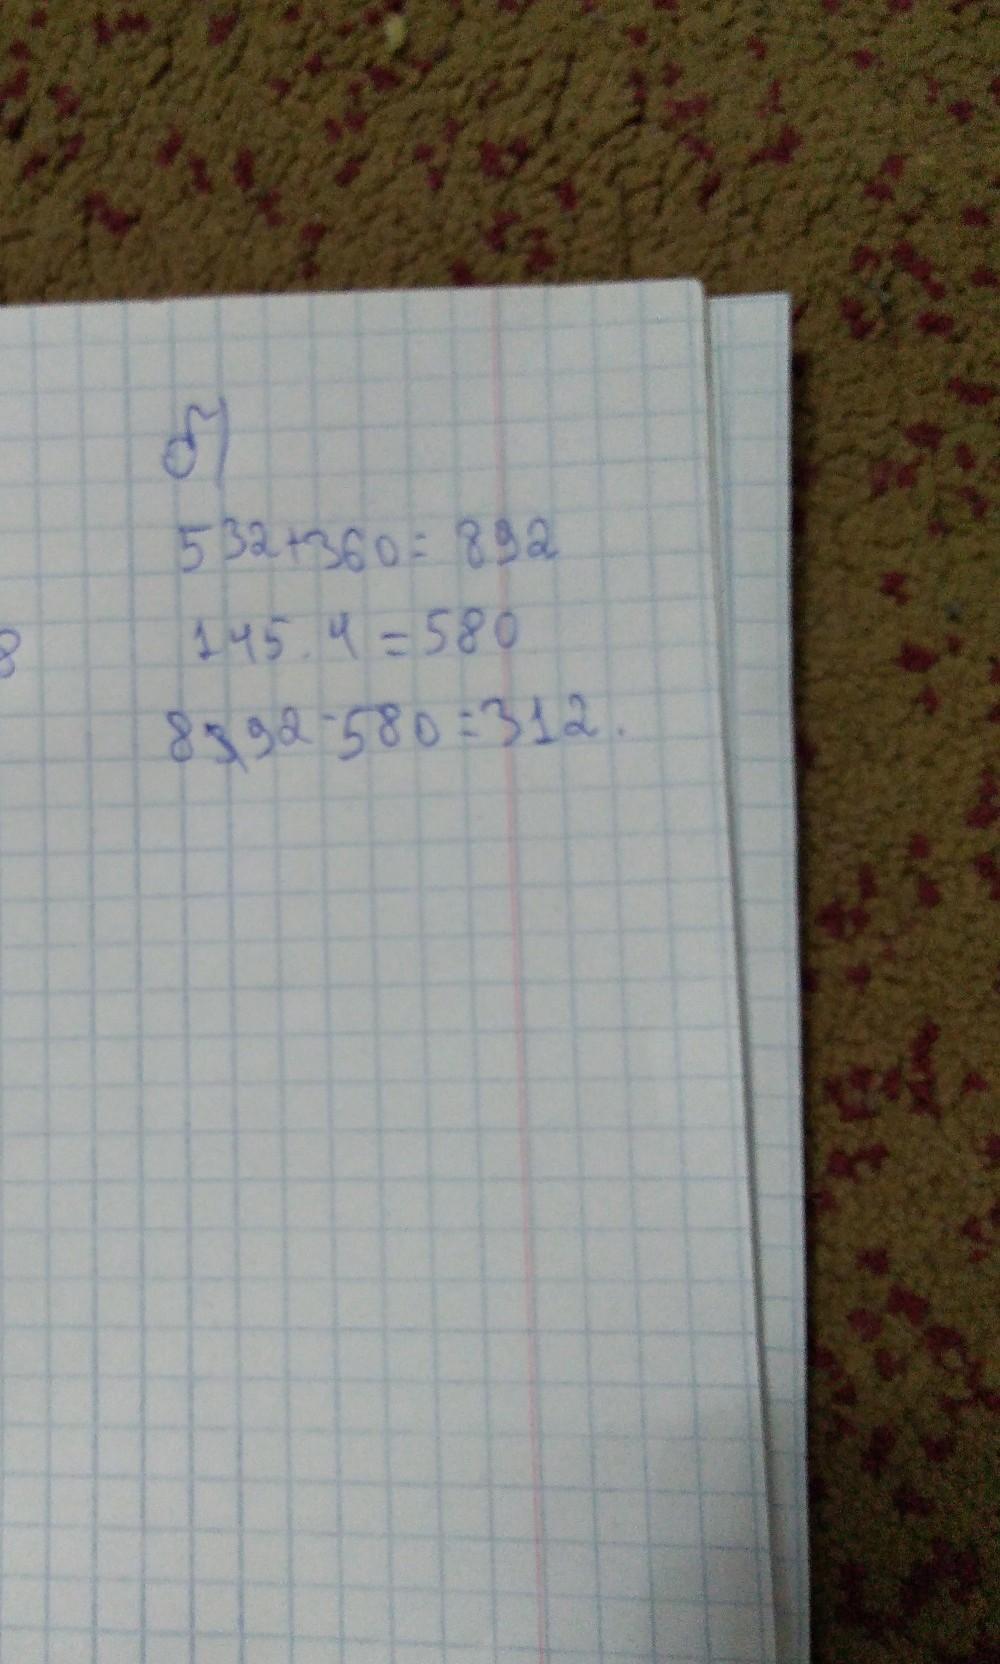 б)
532+360=892
8
145.4=580
892-580=312.